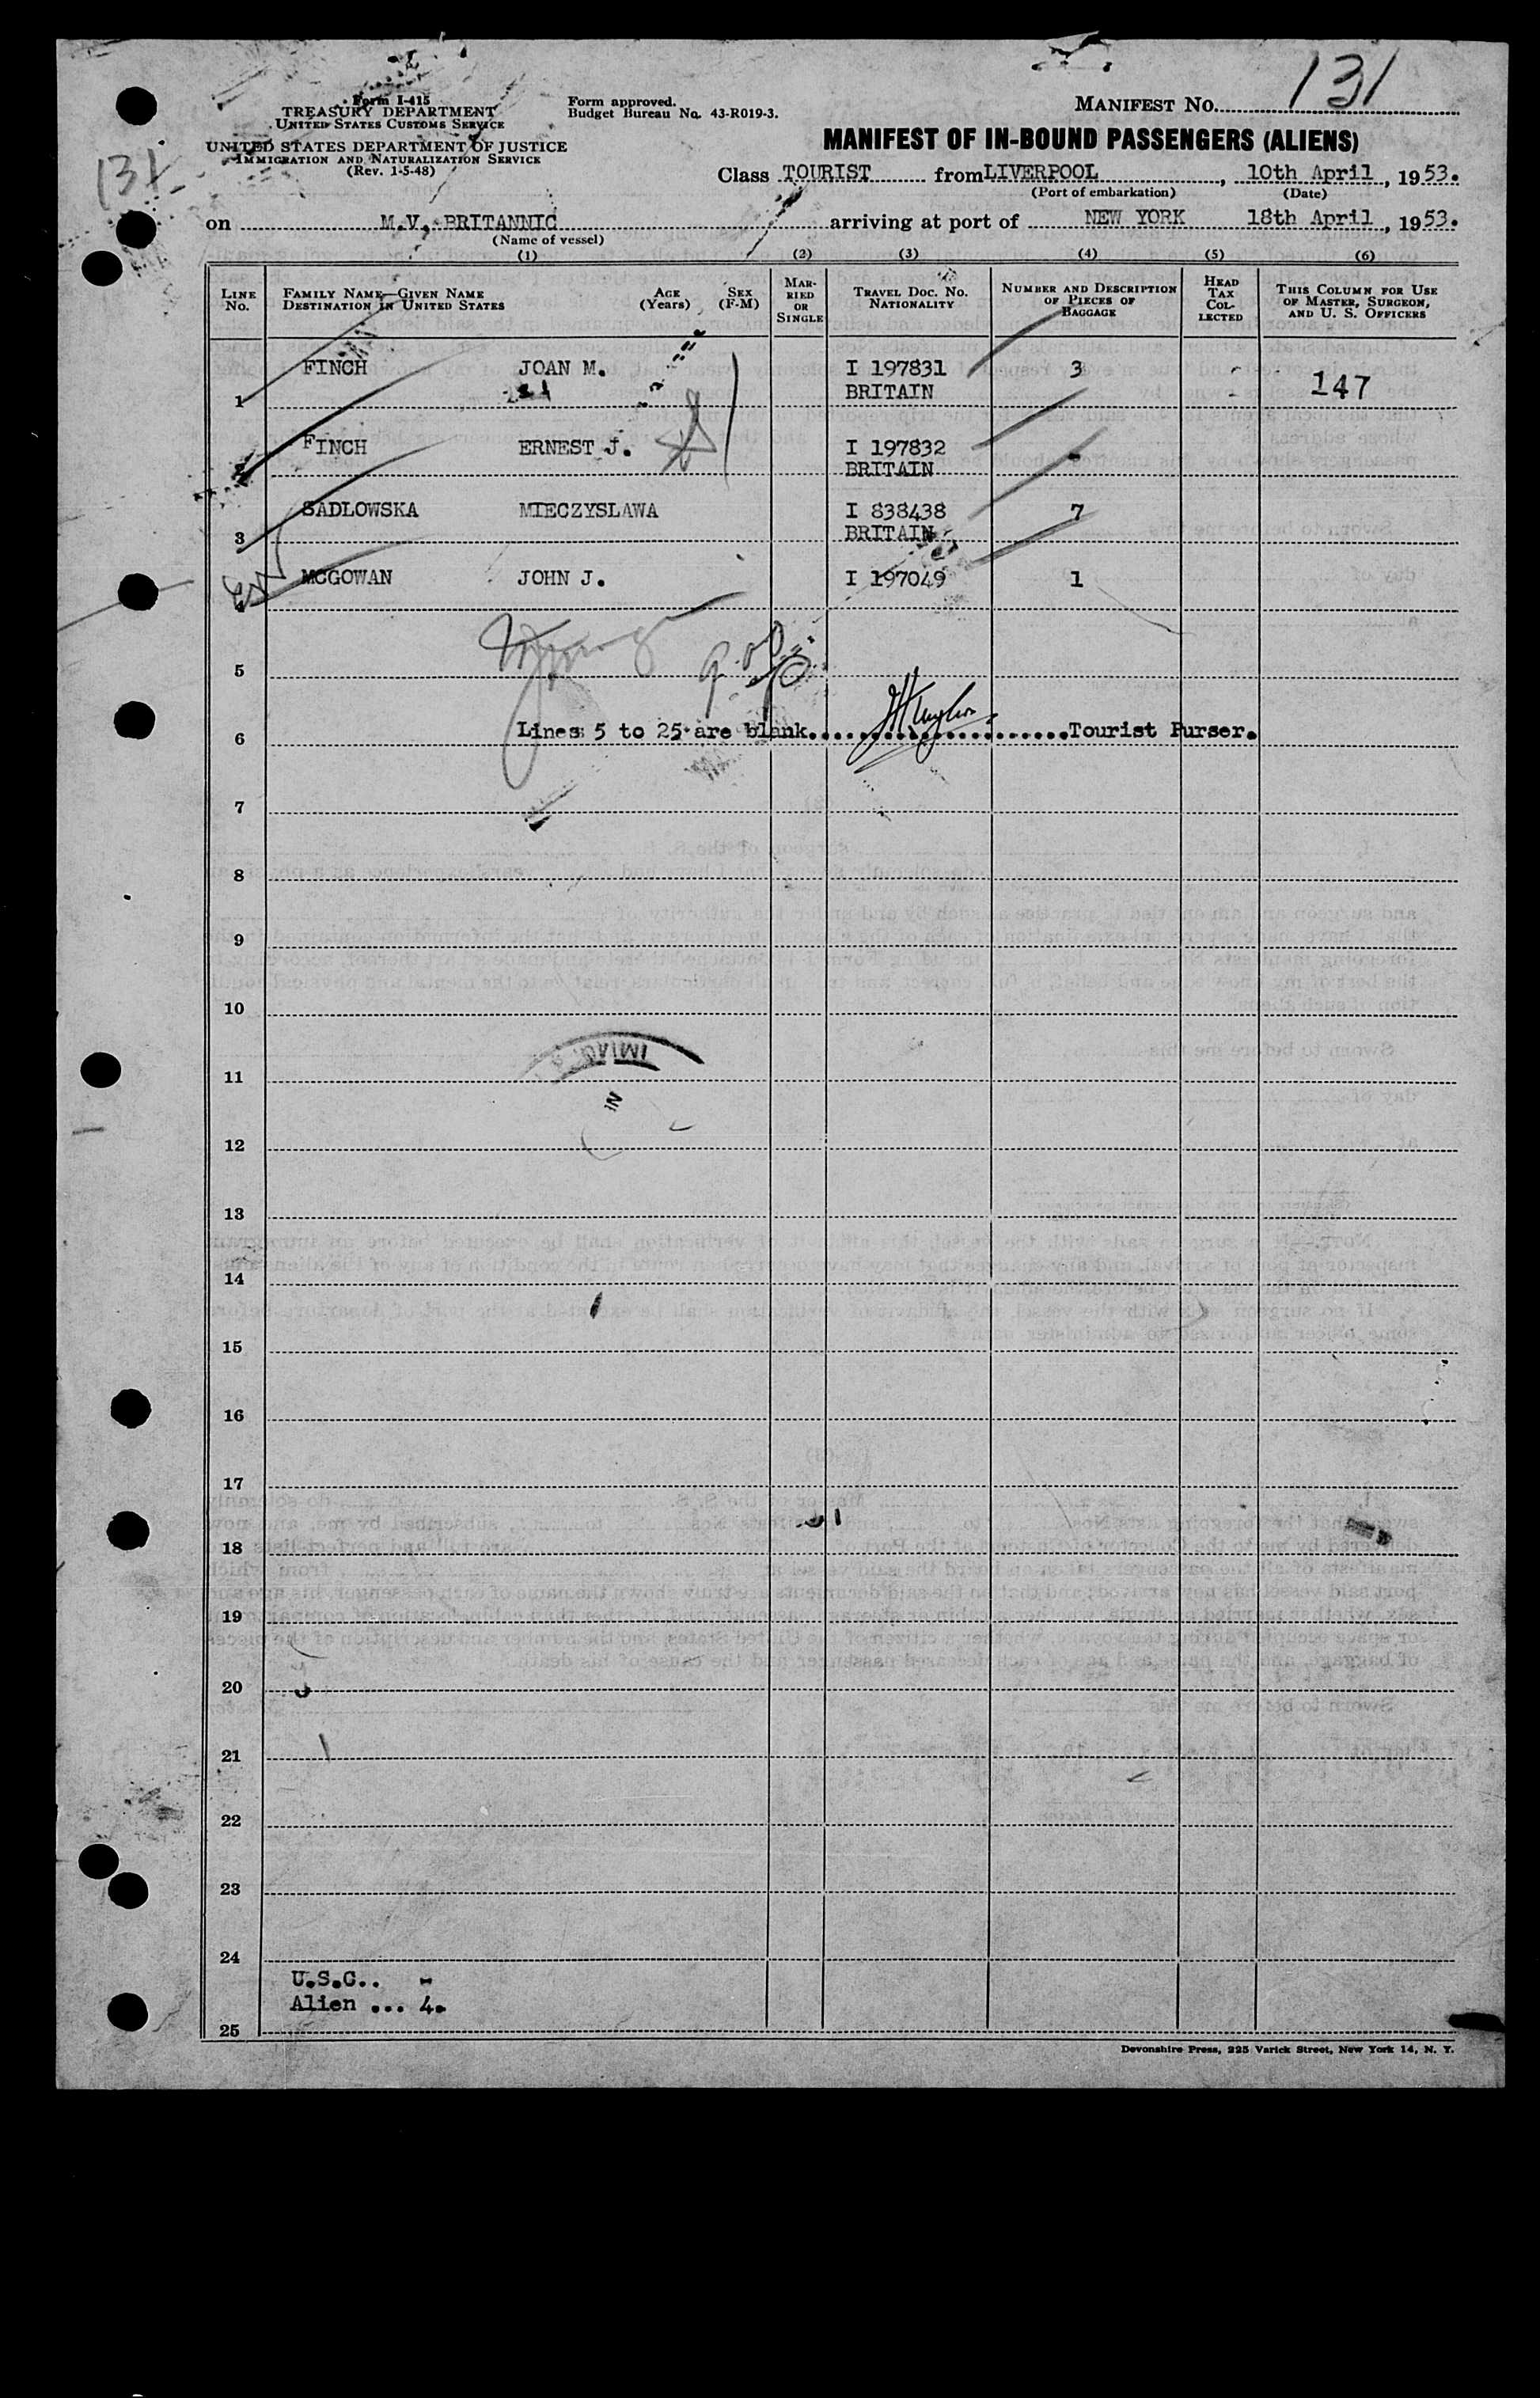 Form I-415
TREASURY DEPARTMENT
UNITED STATES CUSTOMS SERVICE
UNITED STATES DEPARTMENT OF JUSTICE
IMMIGRATION AND NATURALIZATION SERVICE
(Rev. 1-5-48)
Form approved.
Budget Bureau No. 43-R019-3.
MANIFEST No. 131
131
MANIFEST OF IN-BOUND PASSENGERS (ALIENS)
Class TOURIST from LIVERPOOL, 10th April, 1953.
(Port of embarkation) (Date)
on M.V. BRITANNIC arriving at port of NEW YORK 18th April, 1953.
(Name of vessel)
(1) (2) (3) (4) (5) (6)
LINE No. FAMILY NAME—GIVEN NAME DESTINATION IN UNITED STATES AGE (Years) SEX (F-M) MARRIED OR SINGLE TRAVEL DOC. No. NATIONALITY NUMBER AND DESCRIPTION OF PIECES OF BAGGAGE HEAD TAX COLLECTED THIS COLUMN FOR USE OF MASTER, SURGEON, AND U. S. OFFICERS
FINCH JOAN M. I 197831 3 - 147
1 BRITAIN -
FINCH ERNEST J. I 197832 -
2 BRITAIN
SADLOWSKA MIECZYSLAWA I 838438 7
3 BRITAIN
MCGOWAN JOHN J. I 197049 1
4
5
Lines 5 to 25 are blank......................Tourist Purser.
6
7
8
9
10
11
12
13
14
15
16
17
18
19
20
21
22
23
24
U.S.C.. -
Alien ... 4.
25
Devonshire Press, 225 Varick Street, New York 14, N. Y.